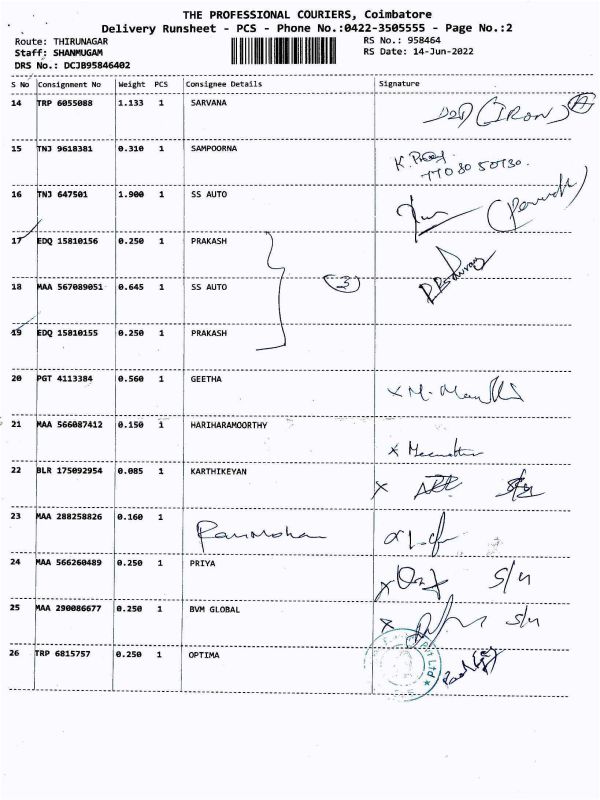 THE PROFESSIONAL COURIERS, Coimbatore
Delivery Runsheet - PCS - Phone No.:0422-3505555 - Page No.:2
Route: THIRUNAGAR
Staff: SHANMUGAM
DRS No.: DCJB95846402
RS No.: 958464
RS Date: 14-Jun-2022
S No Consignment No Weight PCS Consignee Details Signature
14 TRP 6055088 1.133 1 SARVANA
(IRON)
15 TNJ 9618381 0.310 1 SAMPOORNA
77030 50730.
16 TNJ 647501 1.900 1 SS AUTO
17 EDQ 15810156 0.250 1 PRAKASH
18 MAA 567089051 0.645 1 SS AUTO 3
19 EDQ 15810155 0.250 1 PRAKASH
20 PGT 4113384 0.560 1 GEETHA
21 MAA 566087412 0.150 1 HARIHARAMOORTHY
22 BLR 175092954 0.085 1 KARTHIKEYAN
23 MAA 288258826 0.160 1 RamMohan
24 MAA 566260489 0.250 1 PRIYA S/n
25 MAA 290086677 0.250 1 BVM GLOBAL S/n
26 TRP 6815757 0.250 1 OPTIMA